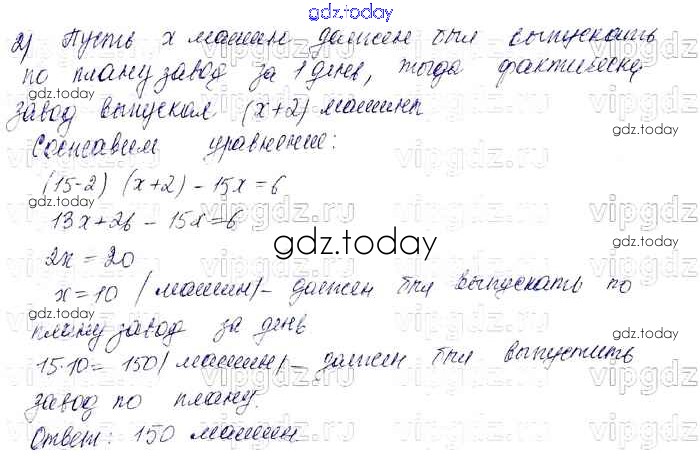 gdz.today
2) Пусть x машин должен был выпускать
по плану завод за 1 день, тогда фактически
завод выпускал (x+2) машины
Составим уравнение:
(15-2) (x+2) - 15x = 6
13x+26 - 15x = 6
2x = 20
x = 10 (машин) - должен был выпускать по
плану завод за день
15·10 = 150 (машин) - должен был выпустить
завод по плану.
Ответ: 150 машин.
gdz.today
gdz.today
gdz.today
gdz.today
gdz.today
gdz.today
gdz.today
vipgdz.ru
vipgdz.ru
vipgdz.ru
vipgdz.ru